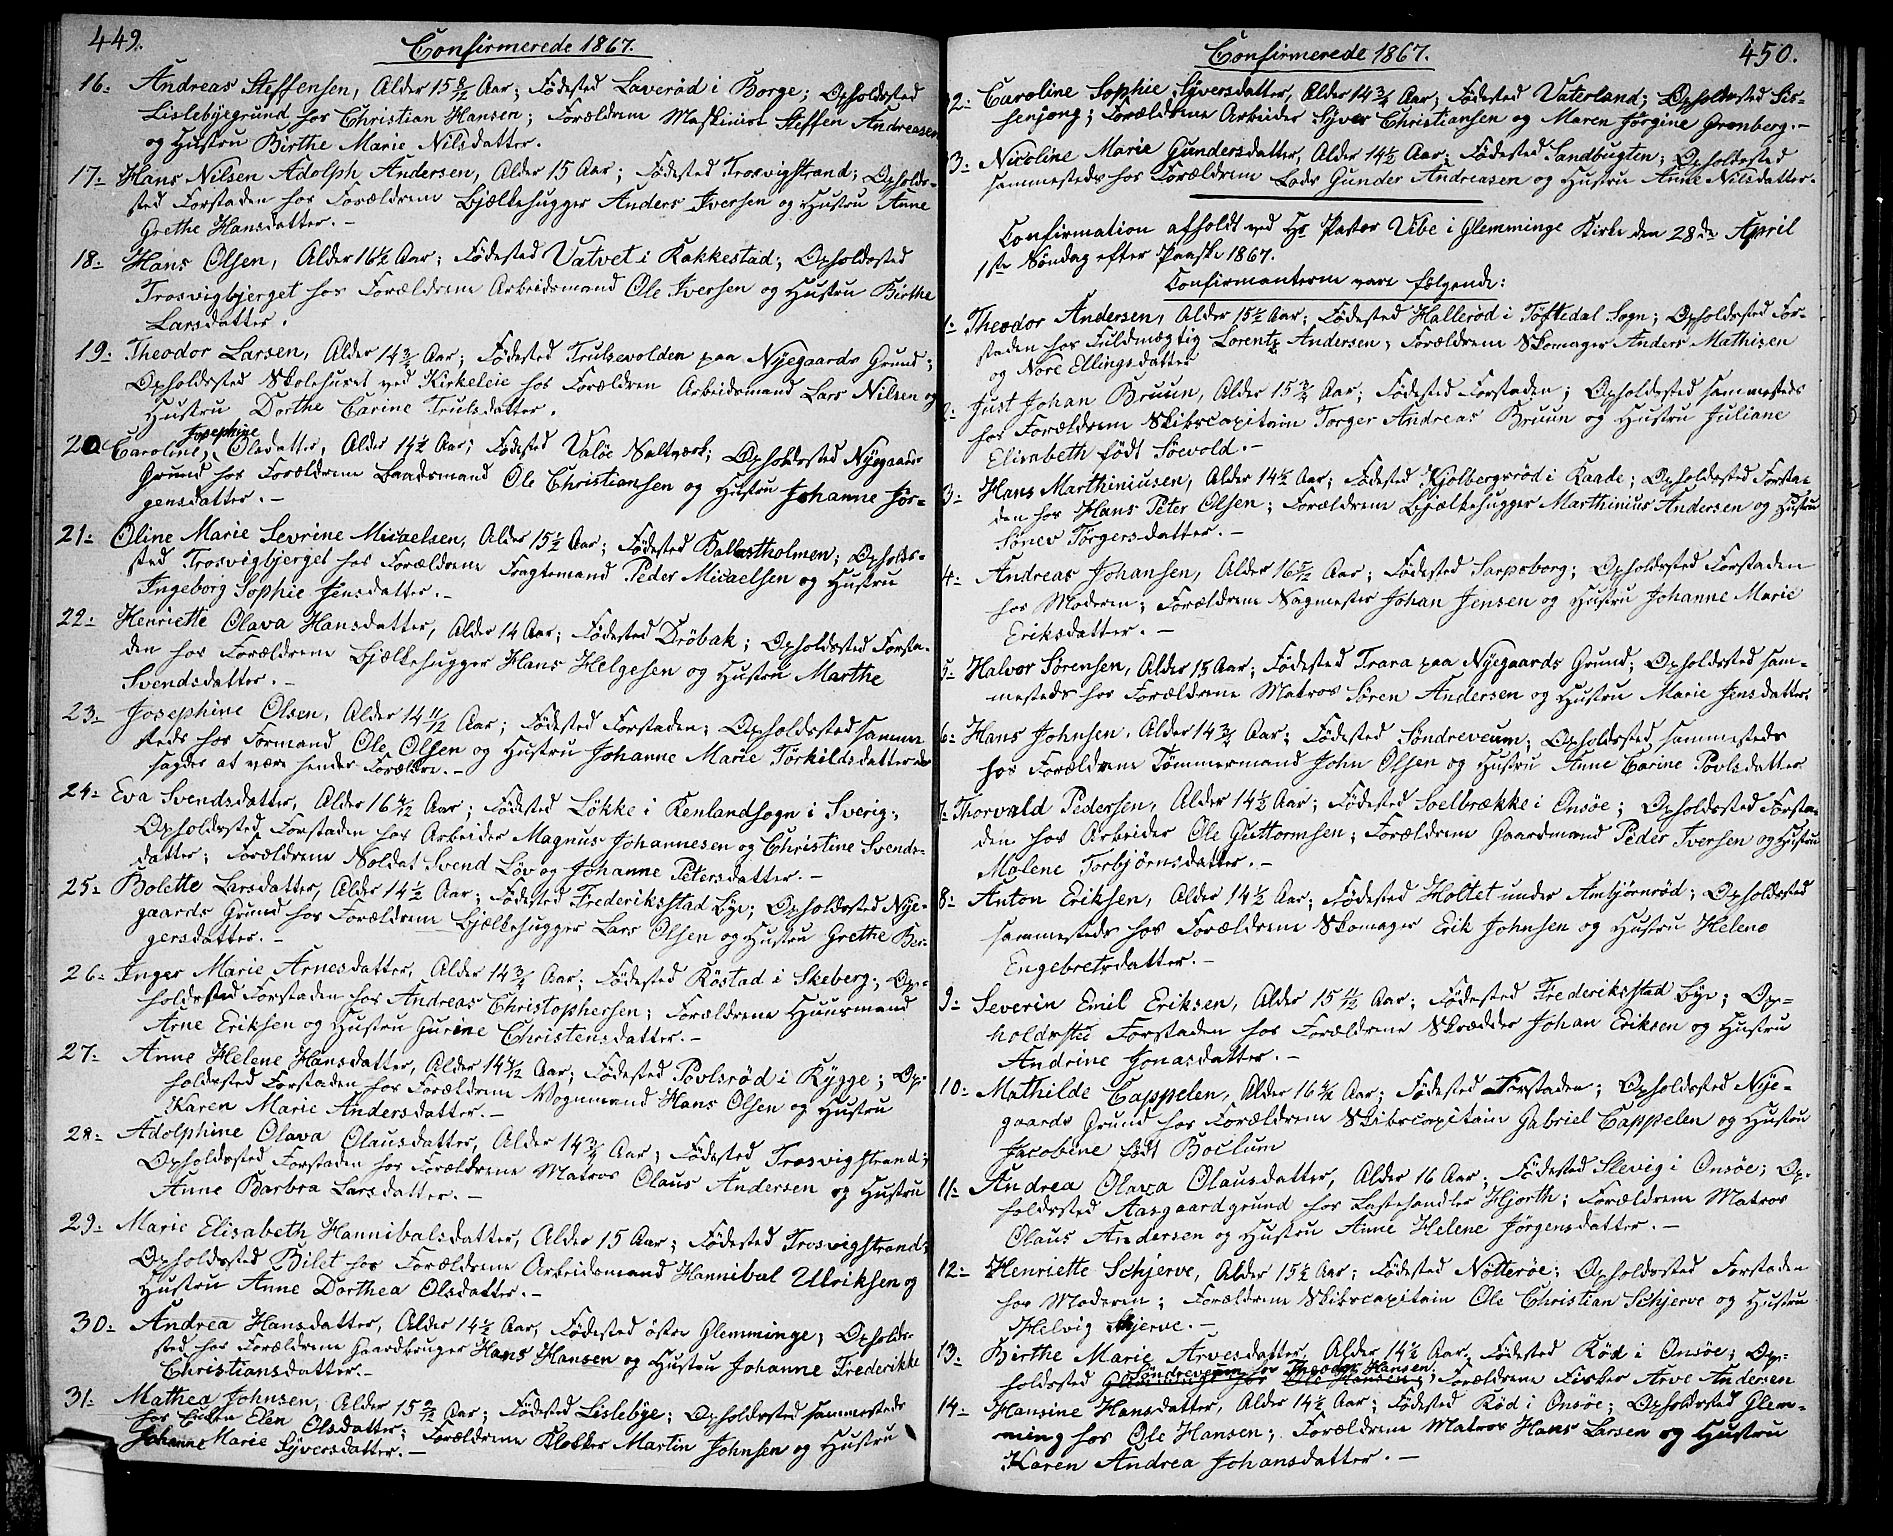 449.
Confirmerede 1867.
16. Andreas Steffensen, Alder 15 8/12 Aar; Födested Laverød i Borge; Opholdssted
Lislebyegrund hos Christian Hansen; Forældrene Maskinist Steffen Andreasen
og Hustru Birthe Marie Nilsdatter.
17. Hans Nilsen Adolph Andersen, Alder 15 Aar; Födested Trosvigstrand; Opholds-
sted Forstaden hos Forældrene Bjælkehugger Anders Iversen og Hustru Anne
Grethe Hansdatter. –
18. Hans Olsen, Alder 16½ Aar; Födested Vatvet i Rakkestad; Opholdssted
Trosvigbjerget hos Forældrene Arbeidsmand Ole Iversen og Hustru Birthe
Larsdatter.
19. Theodor Larsen, Alder 14¾ Aar; Födested Trulsevolden paa Nyegaards Grund;
Opholdssted Skolehuset ved Kirkeleie hos Forældren Arbeidsmand Lars Nilsen og
Hustru Dorthe Carine Trulsdatter.
Josephine
20 Caroline, Olsdatter, Alder 14½ Aar; Födested Valöe Saltværk; Opholdssted Nyegaards
Grund hos Forældrene Baadsmand Ole Christiansen og Hustru Johanne Jör-
gensdatter. –
21. Oline Marie Sevrine Micaelsen, Alder 15½ Aar; Födested Ballastholmen; Opholds-
sted Trosvigbjerget hos Forældrene Fragtemand Peder Micaelsen og Hustru
Ingeborg Sophie Jensdatter. –
22. Henriette Olava Hansdatter, Alder 14 Aar; Födested Dröbak; Opholdssted Forsta-
den hos Forældrene Bjælkehugger Hans Helgesen og Hustru Marthe
Svendsdatter. –
23. Josephine Olsen, Alder 14 11/12 Aar; Födested Forstaden; Opholdssted samme
steds hos Formand Ole Olsen og Hustru Johanne Marie Törkildsdatter der
sagdes at være hendes Forældre. –
24. Eva Svendsdatter, Alder 16 4/12 Aar; Födested Løkke i Renlandsogn i Sverig;
Opholdssted Forstaden hos Arbeider Magnus Johannesen og Christine Svends-
datter; Forældrene Soldat Svend Löv og Johanne Petersdatter. –
25. Bolette Larsdatter, Alder 14½ Aar; Födested Frederiksstad Bye; Opholdssted Nye-
gaards Grund hos Forældrene Bjælkehugger Lars Olsen og Hustru Grethe Ber-
gersdatter. –
26. Inger Marie Arnesdatter, Alder 14¾ Aar; Födested Röstad i Skeberg; Op-
holdssted Forstaden hos Andreas Christophersen; Forældrene Huusmand
Arne Eriksen og Hustru Gurine Christensdatter. –
27. Anne Helene Hansdatter, Alder 14 5/12 Aar; Födested Povlsrød i Rygge; Op-
holdssted Forstaden hos Forældrene Vognmand Hans Olsen og Hustru
Karen Marie Andersdatter. –
28. Adolphine Olava Olausdatter, Alder 14¾ Aar; Födested Trosvigstrand;
Opholdssted Forstaden hos Forældrene Matros Olaus Andersen og Hustru
Anne Barbra Larsdatter. –
29. Marie Elisabeth Hannibalsdatter, Alder 15 Aar; Födested Trosvigstrand;
Opholdssted Bilet hos Forældrene Arbeidsmand Hannibal Ulriksen og
Hustru Anne Dorthea Olsdatter. –
30. Andrea Hansdatter, Alder 14½ Aar, Födested östre Glemminge; Opholds-
sted hos Forældrene Gaardbruger Hans Hansen og Hustru Johanne Frederikke
Christiansdatter. –
31. Mathea Johnsen, Alder 15 2/12 Aar; Födested Lislebye; Opholdssted sammesteds
hos Enken Elen Olsdatter; Forældrene Klokker Martin Johnsen og Hustru
Johanne Marie Syversdatter. –
450.
Confirmerede 1867.
32. Caroline Sophie Syversdatter, Alder 14¾ Aar; Födested Vaterland; Opholdssted Sis-
senjong; Forældrene Arbeider Syver Christiansen og Maren Jörgine Grønberg. –
33. Nicoline Marie Gundersdatter, Alder 14½ Aar; Födested Sandbugten; Opholdssted
sammesteds hos Forældrene Lods Gunder Andreasen og Hustru Anne Nilsdatter.
Confirmation afholdt ved Hr Pastor Vibe i Glemminge Kirke den 28de April
1ste Söndag efter Paaske 1867.
Confirmanterne vare følgende:
1. Theodor Andersen, Alder 15½ Aar; Födested Hallerød i Töftedal Sogn; Opholdssted For-
staden hos Fuldmægtig Lorentz Andersen; Forældrene Skomager Anders Mathisen
og Nore Ellingsdatter
2. Just Johan Bruun, Alder 15¾ Aar; Födested Forstaden; Opholdssted sammesteds
hos Forældrene Skibscapitain Torger Andreas Bruun og Hustru Juliane
Elisabeth født Soevold. –
3. Hans Marthiniusen, Alder 14½ Aar; Födested Kjolbergsrød i Raade; Opholdssted Forsta-
den hos Hans Peter Olsen; Forældrene Bjælkehugger Marthinius Andersen og Hustru
Sönev Törgersdatter. –
4. Andreas Johansen, Alder 16 7/12 Aar; Födested Sarpsborg; Opholdssted Forstaden
hos Moderen; Forældrene Sagmester Johan Jensen og Hustru Johanne Marie
Eriksdatter. –
5. Halvor Sörensen, Alder 15 Aar; Födested Trara paa Nyegaards Grund; Opholdssted sam-
mesteds hos Forældrene Matros Sören Andersen og Hustru Marie Jensdatter.
6. Hans Johnsen, Alder 14¾ Aar; Födested Söndreveum; Opholdssted sammesteds
hos Forældrene Tömmermand John Olsen og Hustru Anne Carine Povlsdatter
7. Thorvald Pedersen, Alder 14½ Aar; Födested Soelbrække i Onsöe; Opholdssted Forsta-
den hos Arbeider Ole Guttormsen; Forældrene Gaardmand Peder Iversen og Hustru
Malene Torbjörnsdatter. –
8. Anton Eriksen, Alder 14½ Aar; Födested Holtet under Ambjørnrød; Opholdssted
sammesteds hos Forældrene Skomager Erik Johnsen og Hustru Helene
Engebretsdatter. –
9. Severin Emil Eriksen, Alder 15 11/12 Aar; Födested Frederiksstad Bye; Op-
holdssted Forstaden hos Forældrene Skrædder Johan Eriksen og Hustru
Andrine Jonasdatter. –
10. Mathilde Cappelen, Alder 16¼ Aar; Födested Forstaden; Opholdssted Nye-
gaards Grund hos Forældrene Skibscapitain Gabriel Cappelen og Hustru
Jacobine født Boclum
11. Andrea Olava Olausdatter, Alder 16 Aar; Födested Slevig i Onsöe; Op-
holdssted Aasgaardgrund hos Lastehandler Hjorth; Forældrene Matros
Olaus Andersen og Hustru Anne Helene Jörgensdatter. –
12. Henriette Schjerve, Alder 15½ Aar; Födested Nötteröe; Opholdssted Forstaden
hos Moderen; Forældrene Skibscapitain Ole Christian Schjerve og Hustru
Helvig Skjerve. –
13. Birthe Marie Arvesdatter, Alder 14½ Aar, Födested Rød i Onsöe; Op-
Söndreveum hos Theodor Hansen
holdssted Glemming hos Ole Hansen; Forældrene Fisker Arve Andersen
14. Hansine Hansdatter, Alder 14½ Aar; Födested Rød i Onsöe; Opholdssted Glem-
ming hos Ole Hansen; Forældrene Matros Hans Larsen og Hustru
Karen Andrea Johansdatter. –